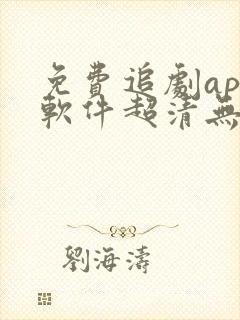 免費追劇ap
軟件超清無
劉海濤